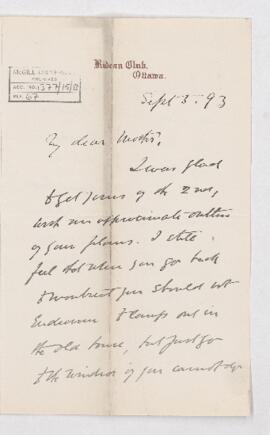 McGILL UNIVERSITY
ARCHIVES
ACC. NO. 1377/15/
REF. 67
Rideau Club,
Ottawa.
Sept 5. 93
My dear Mother,
I was glad
to get yours of the 2nd,
with an approximate outline
of your plans. I still
feel that when you go back
to Montreal you should not
Endeavour to camp out in
the old house, but just go
to the Windsor if you cannot